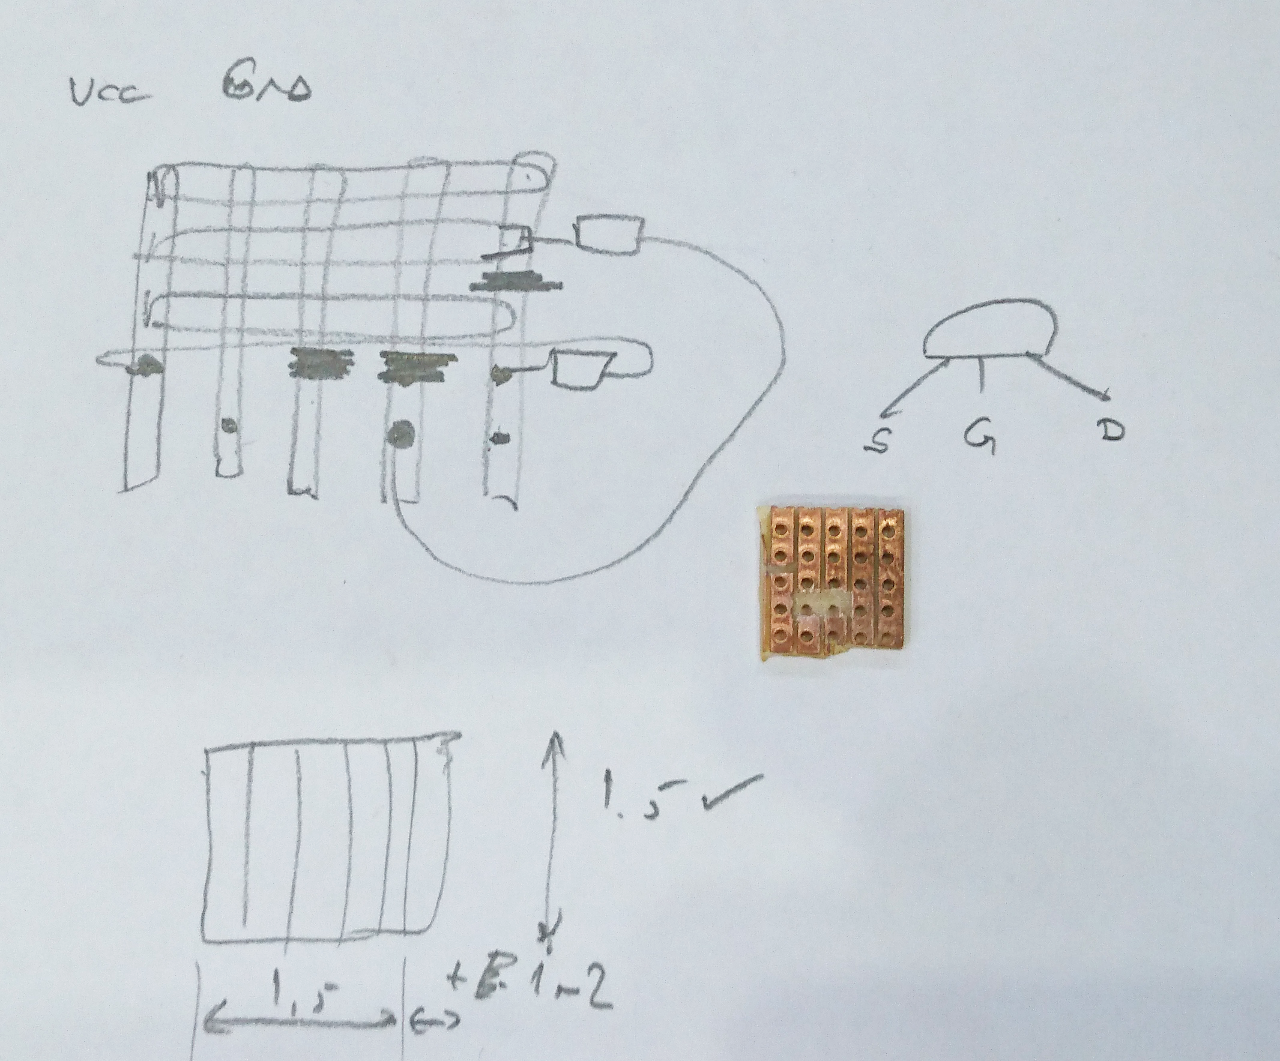 Vcc GND
S G D
1.5 ✓
1,5